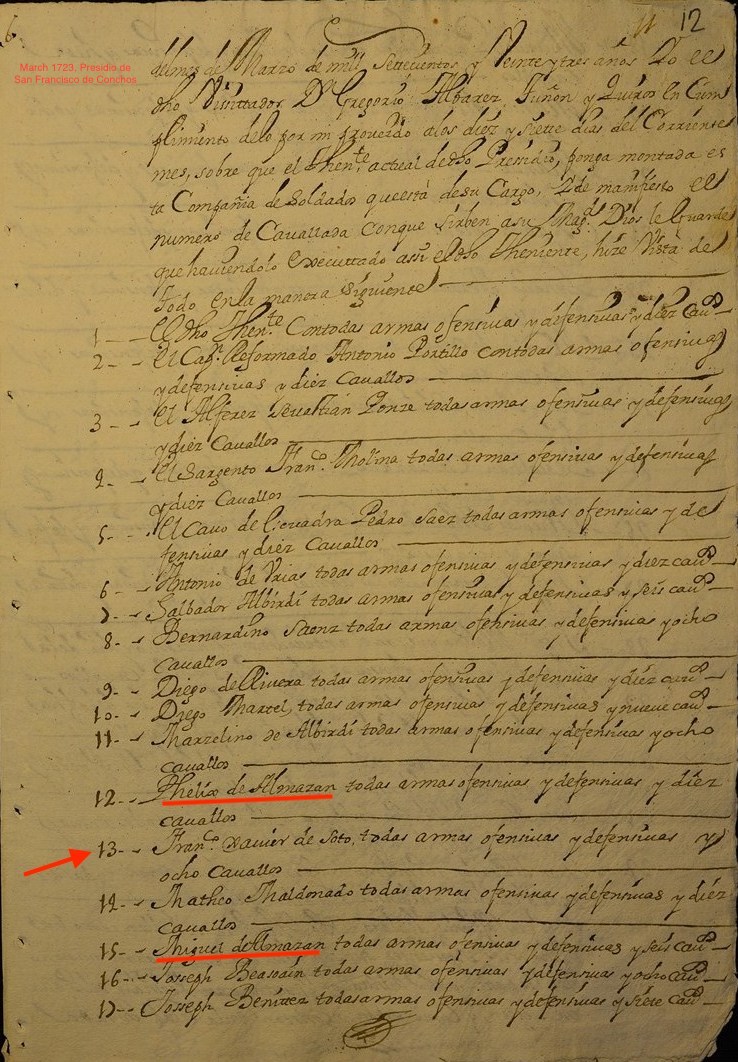 12
March 1723, Presidio de
San Francisco de Conchos
del mes de Marzo de mill settecientos y Veinte y tres años Yo el
dho Vissittador Dn Gregorio Albarez Tuñon y Quiros En Cum
plimiento de lo por mi proveido a los diez y siete dias del Corriente
mes, sobre que el Thente actual de dho Pressidio, ponga montada es
ta Compañia de Soldados que está de su Cargo, Y de manifiesto el
numero de Cavallada conque sirben a su Magd Dios le Guarde
que haviendolo executtado assi el dho Theniente, hize Vista de
todo En la manera siguiente
1 — El dho Thente Con todas armas ofensivas y defensivas y diez cavos
2 - El Capn Reformado Antonio Portillo con todas armas ofensivas
y defensivas y diez Cavallos
3 - El Alferez Sevastian Ponze todas armas ofensivas y defensivas
y diez Cavallos
4 - El Sargento Franco Molina todas armas ofensivas y defensivas
y diez Cavallos
5 - El Cavo de Escuadra Pedro Saez todas armas ofensivas y de
fensivas y diez Cavallos
6 - Antonio de Vrias todas armas ofensivas y defensivas y diez cavos
7 - Salbador Albirdi todas armas ofensivas y defensivas y seis cavos
8 - Bernardino Saenz todas armas ofensivas y defensivas y ocho
cavallos
9 - Diego de Rivera todas armas ofensivas y defensivas y diez cavos
10 - Diego Martel, todas armas ofensivas y defensivas y nueve cavos
11 - Marzelino de Albirdi todas armas ofensivas y defensivas y ocho
cavallos
12 - Phelix de Almazan todas armas ofensivas y defensivas y diez
cavallos
13 - Franco Xavier de Soto, todas armas ofensivas y defensivas y
ocho Cavallos
14 - Matheo Maldonado todas armas ofensivas y defensivas y diez
cavallos
15 - Miguel de Almazan todas armas ofensivas y defensivas y seis cavos
16 - Josseph Beasoain todas armas ofensivas y defensivas y ocho cavos
17 - Josseph Benittez todas armas ofensivas y defensivas y siete cavos